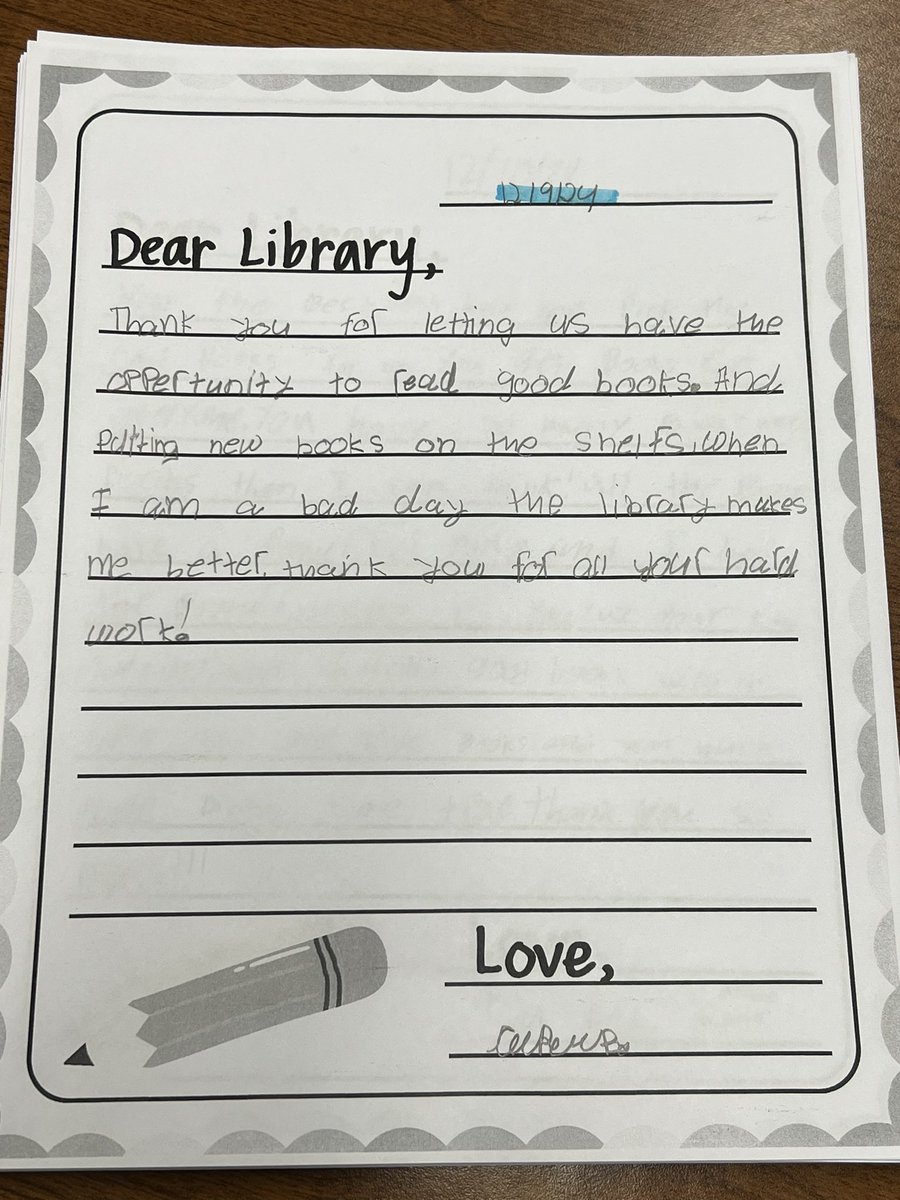 12/9/24
Dear Library,
Thank you for letting us have the
oppertunity to read good books. And
putting new books on the shelfs, when
I am a bad day the library makes
me better. thank you for all your hard
work!
Love,